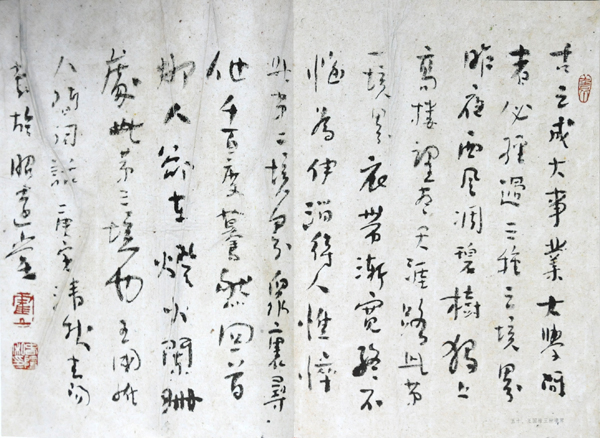 古之成大事業大學問
者必經過三種之境界
昨夜西風凋碧樹獨上
高樓望盡天涯路此第
一境界衣帶漸寬終不
悔為伊消得人憔悴
此第二境界眾裏尋
他千百度驀然回首
那人卻在燈火闌珊
處此第三境也王國維
人間詞話庚寅